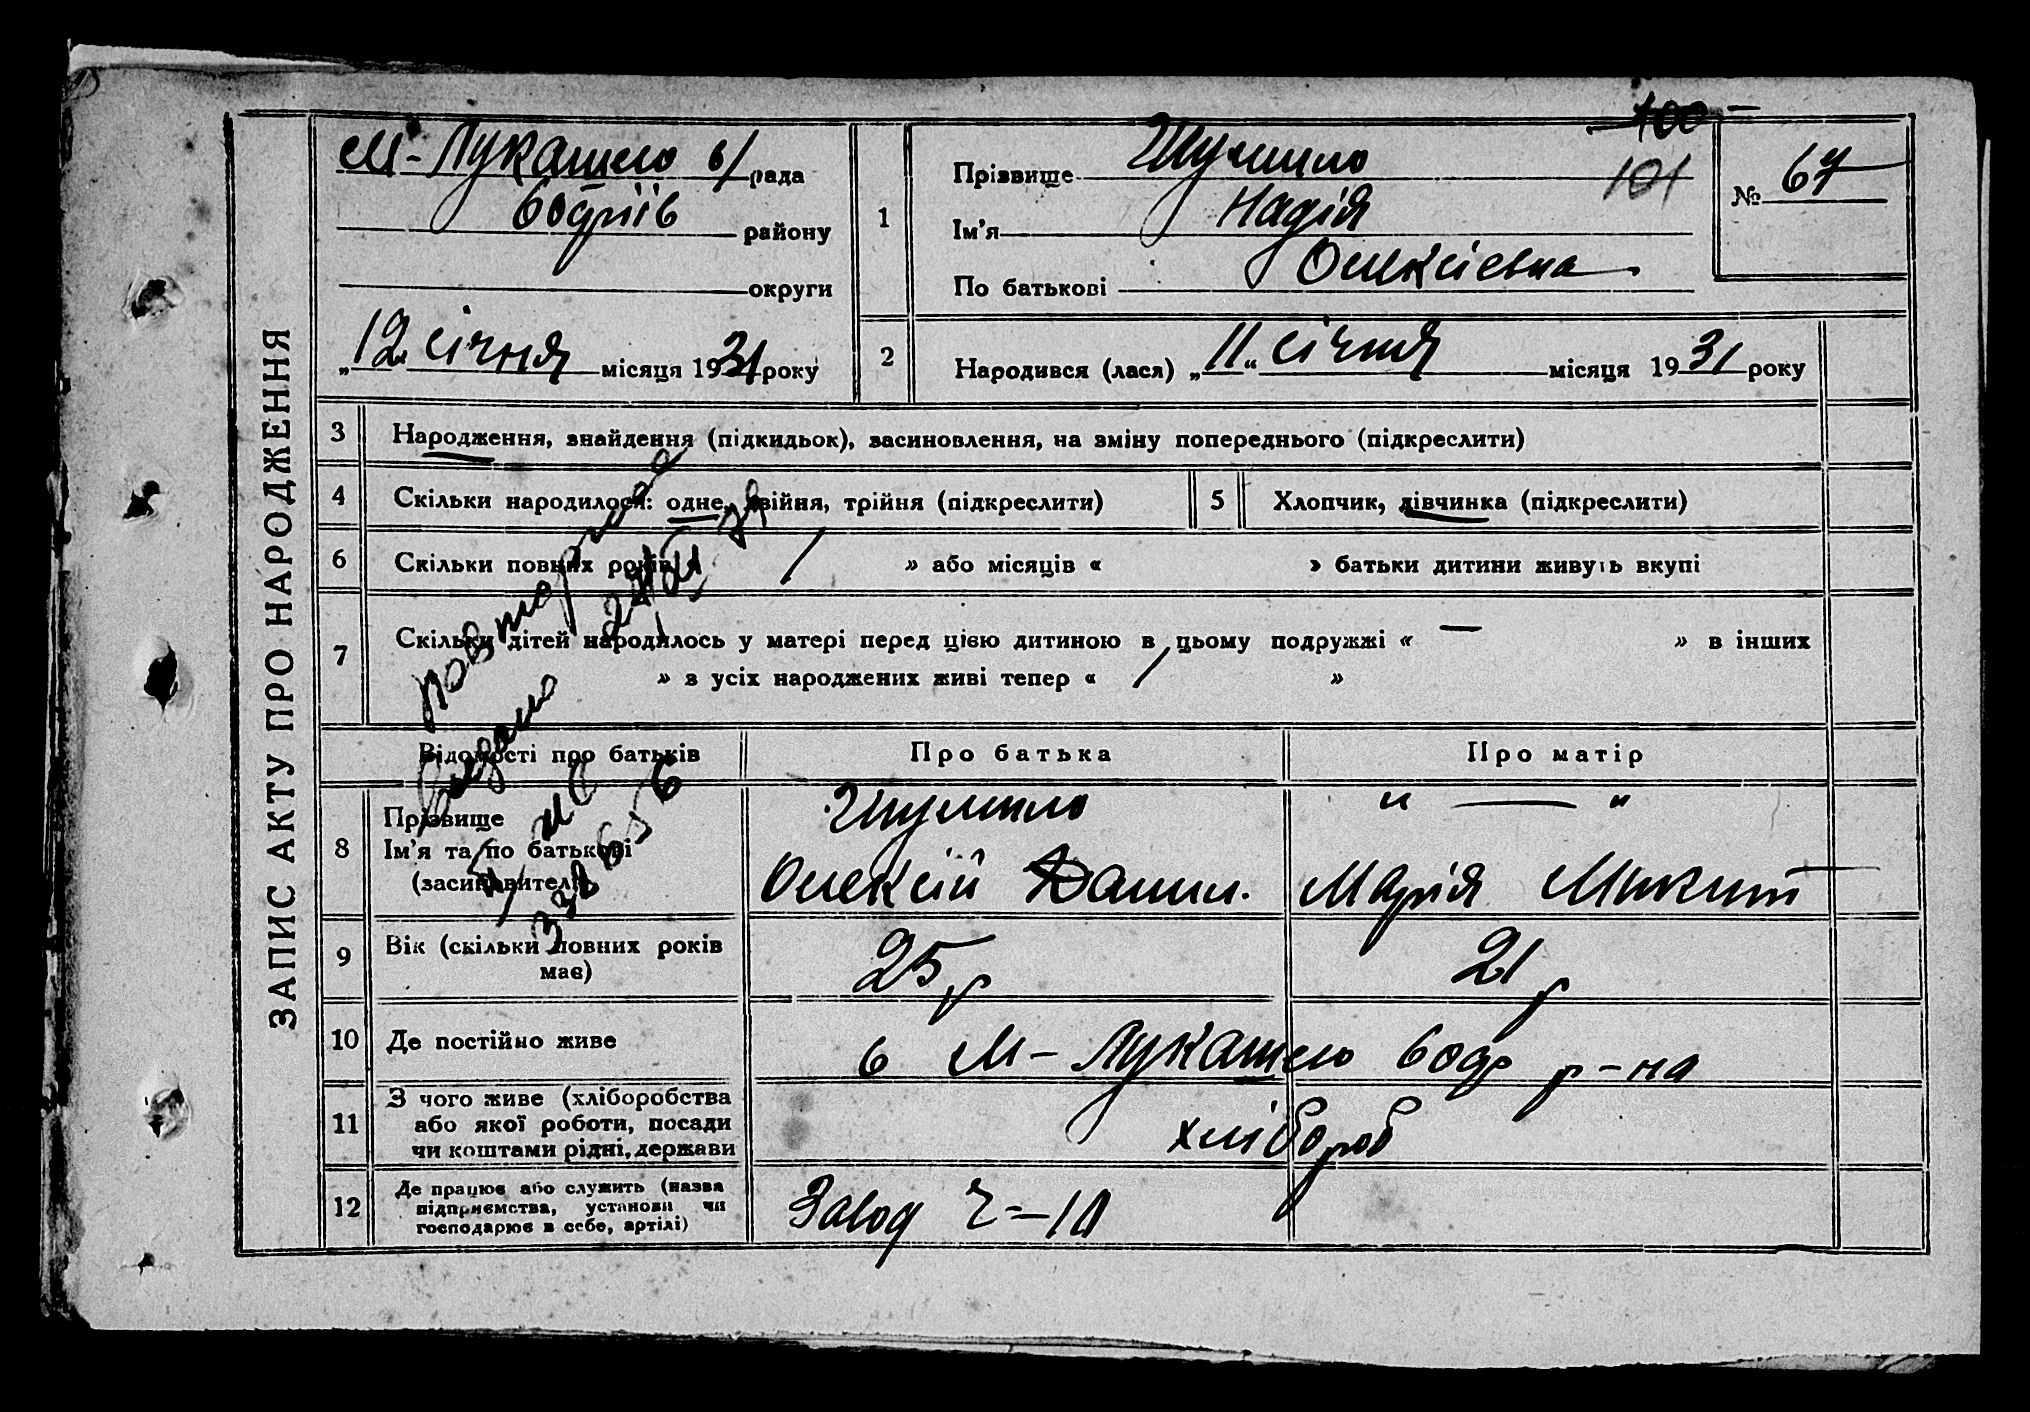 ЗАПИС АКТУ ПРО НАРОДЖЕННЯ
М-Лукашево с/рада
району
округи
„12 січня місяця 1931 року
1
Прізвище Шумило
Ім'я Надія
По батькові Олексієвна
100
101
№ 67
2
Народився (лася) „11“ січня місяця 1931 року
3 Народження, знайдення (підкидьок), засиновлення, на зміну попереднього (підкреслити)
4 Скільки народилося: одне, двійня, трійня (підкреслити)
5 Хлопчик, дівчинка (підкреслити)
6 Скільки повних років 1 » або місяців « » батьки дитини живуть вкупі
7 Скільки дітей народилось у матері перед цією дитиною в цьому подружжі « — » в інших
» в усіх народжених живі тепер « / »
повторное
Відомості про батьків
Про батька
Про матір
8 Прізвище
Ім'я та по батькові
(засиновителі)
Шумило
Олексій Данил.
„ — “
Марія Микит
9 Вік (скільки повних років має)
25 р
21 р
10 Де постійно живе
в М-Лукашево р-на
11 З чого живе (хліборобства
або якої роботи, посади
чи коштами рідні, держави
хлібороб
12 Де працює або служить (назва
підприємства, установи чи
господарює в себе, артілі)
Завод